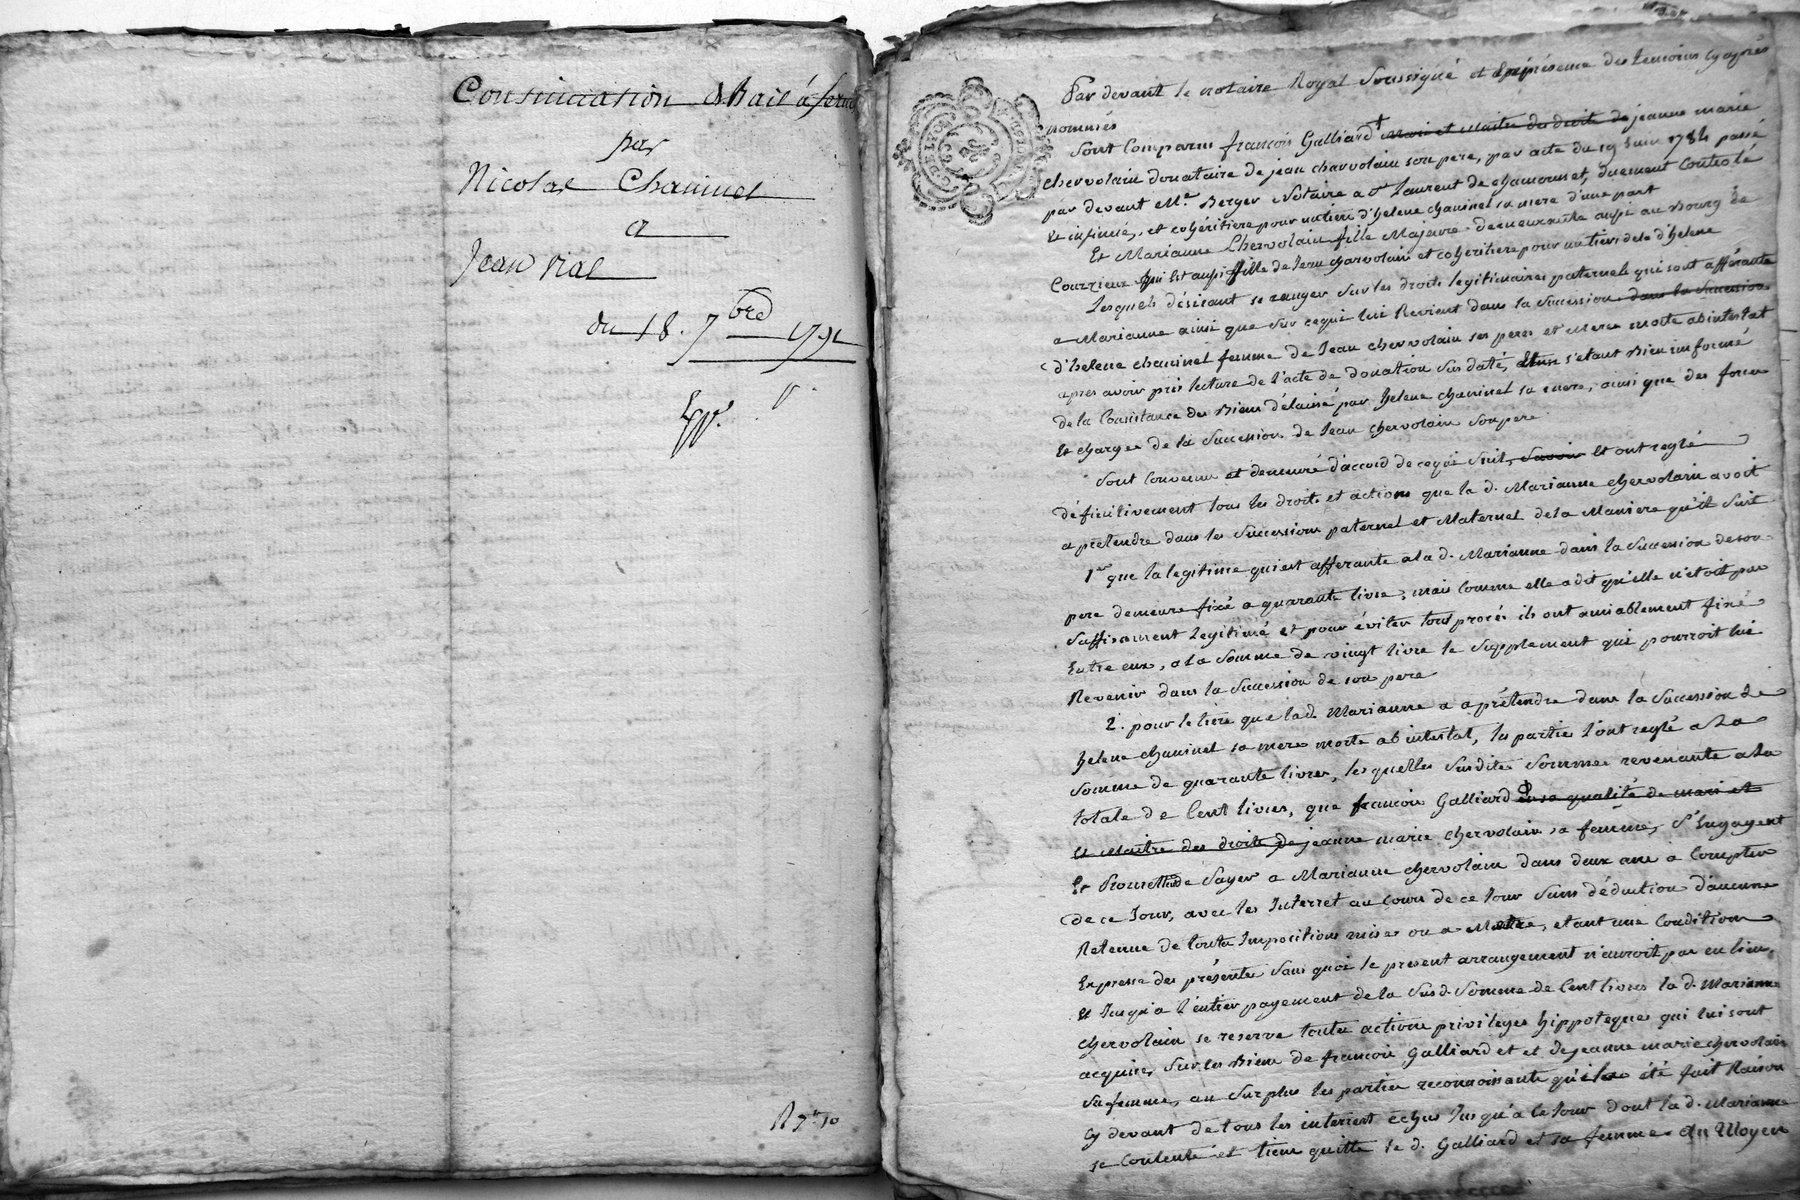 Continuation de Bail à ferme
par
Nicolas Chaminel
a
Jean Vial
du 18. 7bre 1791
Exp.
R 7# 10
Par devant le notaire Royal Soussigné et En présence des temoins cy après
nommés
Sont Comparus françois Galliard + Mari et Maitre des droits de jeanne marie
chervolain donataire de jean chervolain son pere, par acte du 19 Juin 1784 passé
par devant Me. Berger Notaire a St Laurent de chamousset, duement Controlé
Et insinué, et cohéritiere pour un tiers d'helene chaminel sa mere d'une part
Et Marianne Chervolain fille Majeure demeurante aussi au Bourg de
Courzieux qui Est aussi fille de Jean chervolain et cohéritiere pour un tiers de la d'helene
Lesquels désirant se ranger Sur les droits legitimaires paternels qui sont afférante
a Marianne ainsi que Sur ce qui lui Revient dans la Succession dans la Succession
d'helene chaminel femme de Jean chervolain ses peres et meres morte abintestat
apres avoir pris lecture de l'acte de donation Sus daté, s'etant Bien informé
de la Consistance des Biens délaissé par helene chaminel sa mere, ainsi que des forces
Et charges de la Succession de Jean chervolain Son pere
Sont Convenu et demeuré d'accord de ce qui Suit, Savoir Et ont reglé
définitivement tous les droits et actions que la d. Marianne chervolain avoit
a prétendre dans les Successions paternel et Maternel de la Maniere qu'il Suit
1er que la legitime qui est afferante a la d. Marianne dans la Succession de son
pere demeure fixé a quarante livre, mais Comme elle a dit qu'elle n'etoit pas
Suffisament Legitimé et pour éviter tout procès ils ont amiablement fixé
Entre eux, a la Somme de vingt livre le Supplement qui pourroit lui
Revenir dans la Succession de son pere
2. pour le tiers que la d. Marianne a a prétendre dans la Succession de
helene chaminel sa mere morte ab intestat, les parties l'ont reglé a la
Somme de quarante livres, les quelles Susdites Sommes revenante a la
totale de Cent livres, que francois Galliard en sa qualité de mari et
Et Maitre des droits de jeanne marie chervolain sa femme, s'Engagent
Et Promettent de Payer a Marianne chervolain dans deux ans à Compter
de ce Jour, avec les Interret au cours de ce Jour Sans déduction d'aucune
Retenue de toutes Impositions mises ou a Mettre, etant une Condition
Expresse des présentes Sans quoi le present arrangement n'auroit pas eu lieu,
Et Jusqu'a l'entier payement de la Susd. Somme de Cent livres la d. Marianne
chervolain se reserve toutes actions privileges hippoteques qui lui sont
acquises Sur les Biens de francois Galliard et et de jeanne marie chervolain
sa femme, au Surplus les parties reconnoissante qu'il a été fait Raison
cy devant de tous les interrest échus Jusqu'a ce Jour dont la d. Marianne
se Contente et tient quitte le d. Galliard et sa femme. Au Moyen